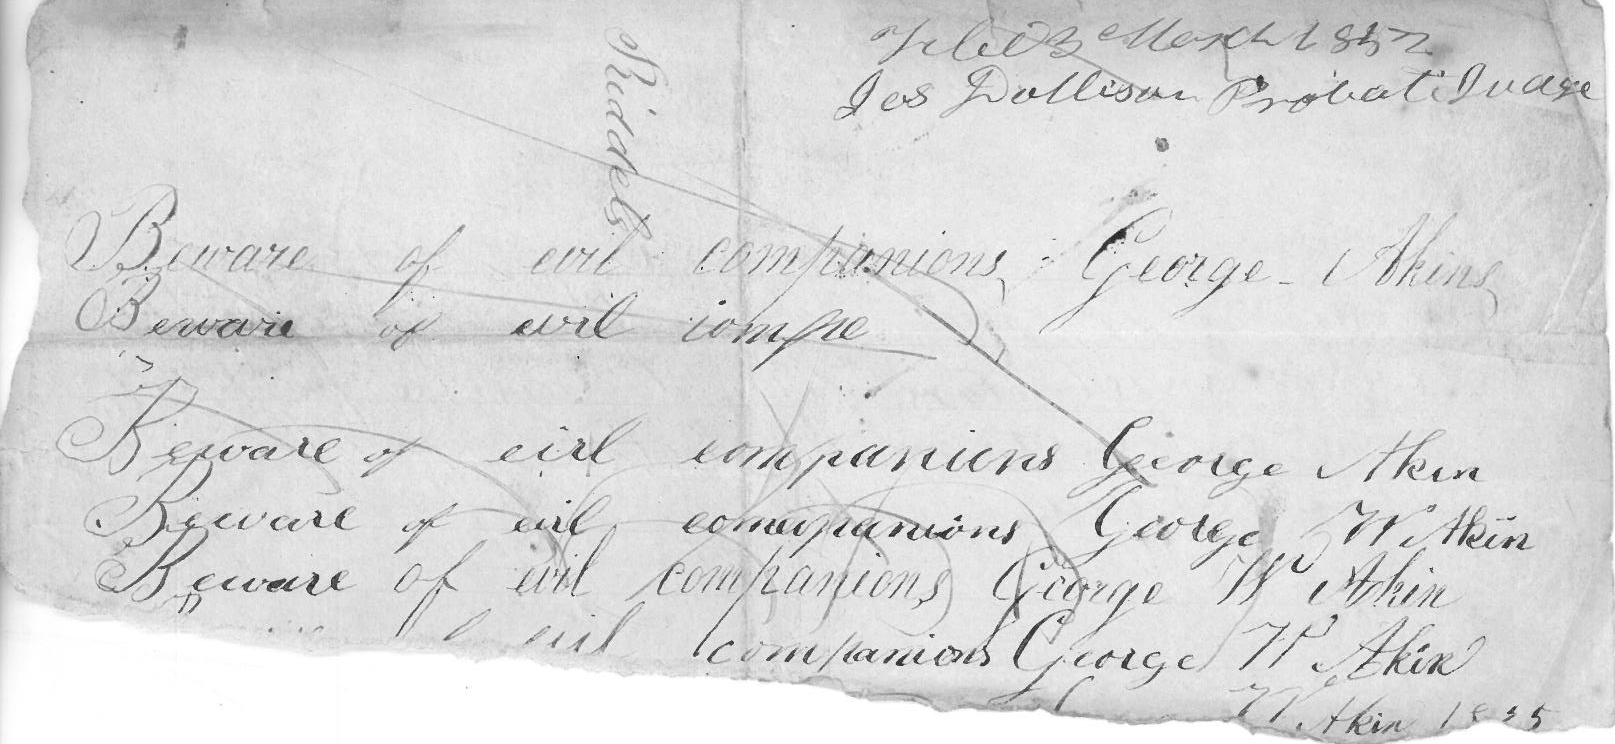 Filed 3 March 1857
Jos Dollison Probate Judge
Riddels
Beware of evil companions George Akins
Beware of evil compe
Beware of eivl companions George Akin
Beware of evil comeypanions George W Akin
Beware of evil companions George W Akin
evil companions George W Akin
W Akin 1835